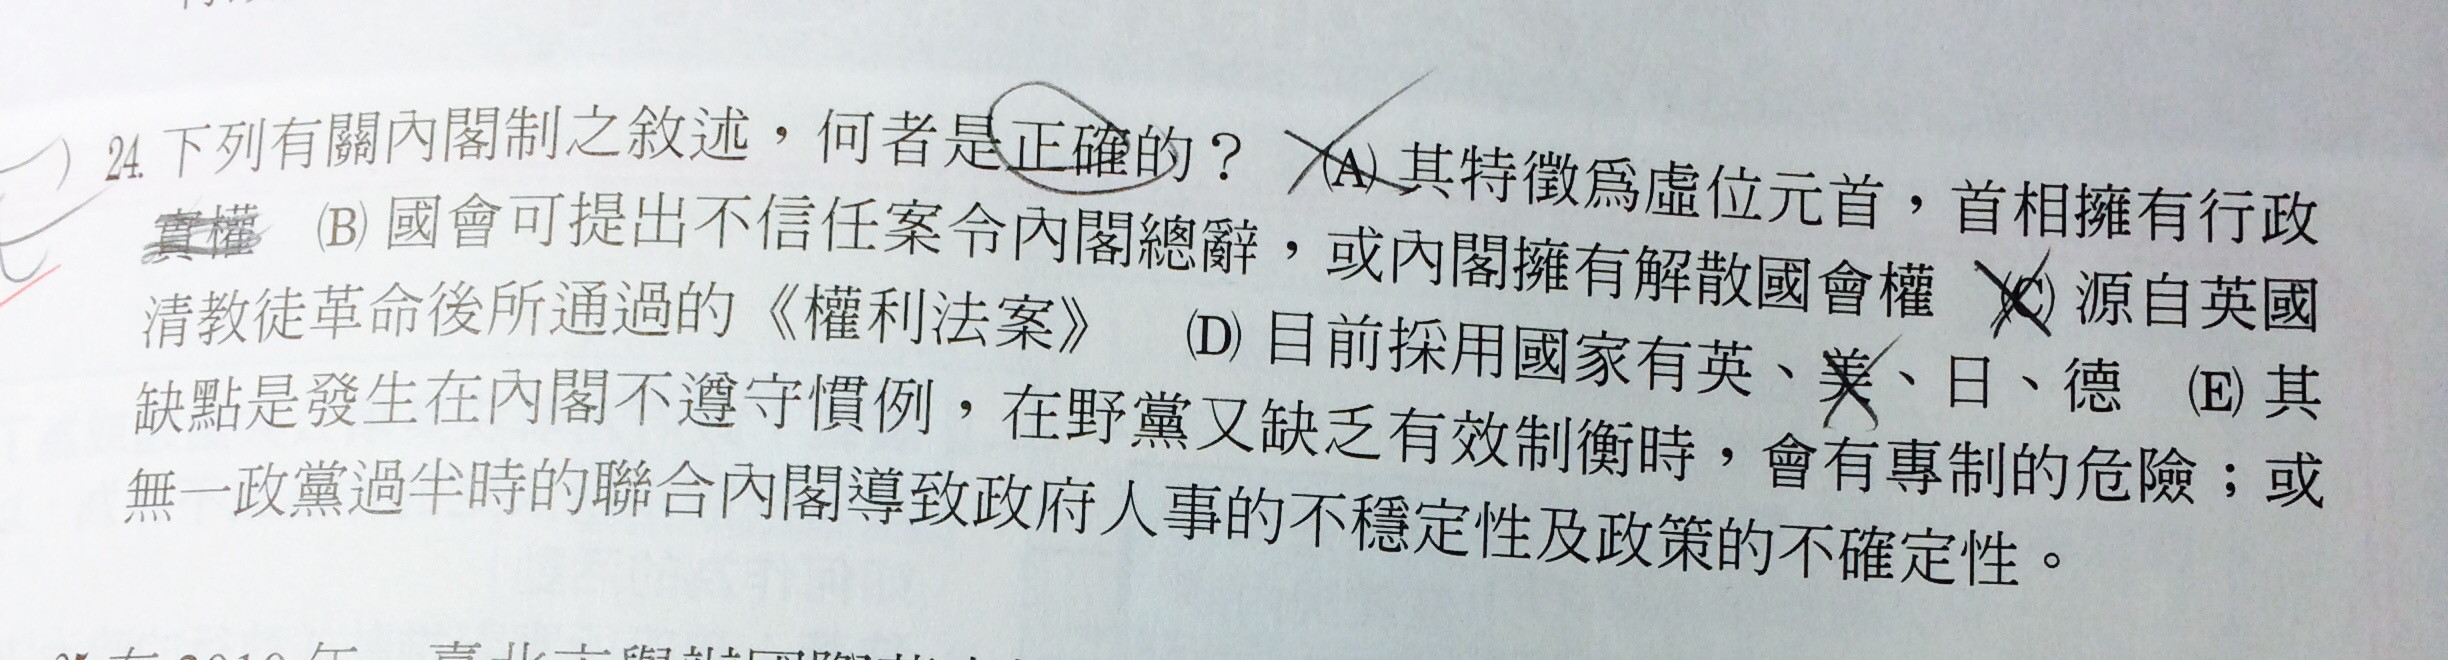 24. 下列有關內閣制之敘述，何者是正確的？ (A) 其特徵為虛位元首，首相擁有行政
實權 (B) 國會可提出不信任案令內閣總辭，或內閣擁有解散國會權 (C) 源自英國
清教徒革命後所通過的《權利法案》 (D) 目前採用國家有英、美、日、德 (E) 其
缺點是發生在內閣不遵守慣例，在野黨又缺乏有效制衡時，會有專制的危險；或
無一政黨過半時的聯合內閣導致政府人事的不穩定性及政策的不確定性。